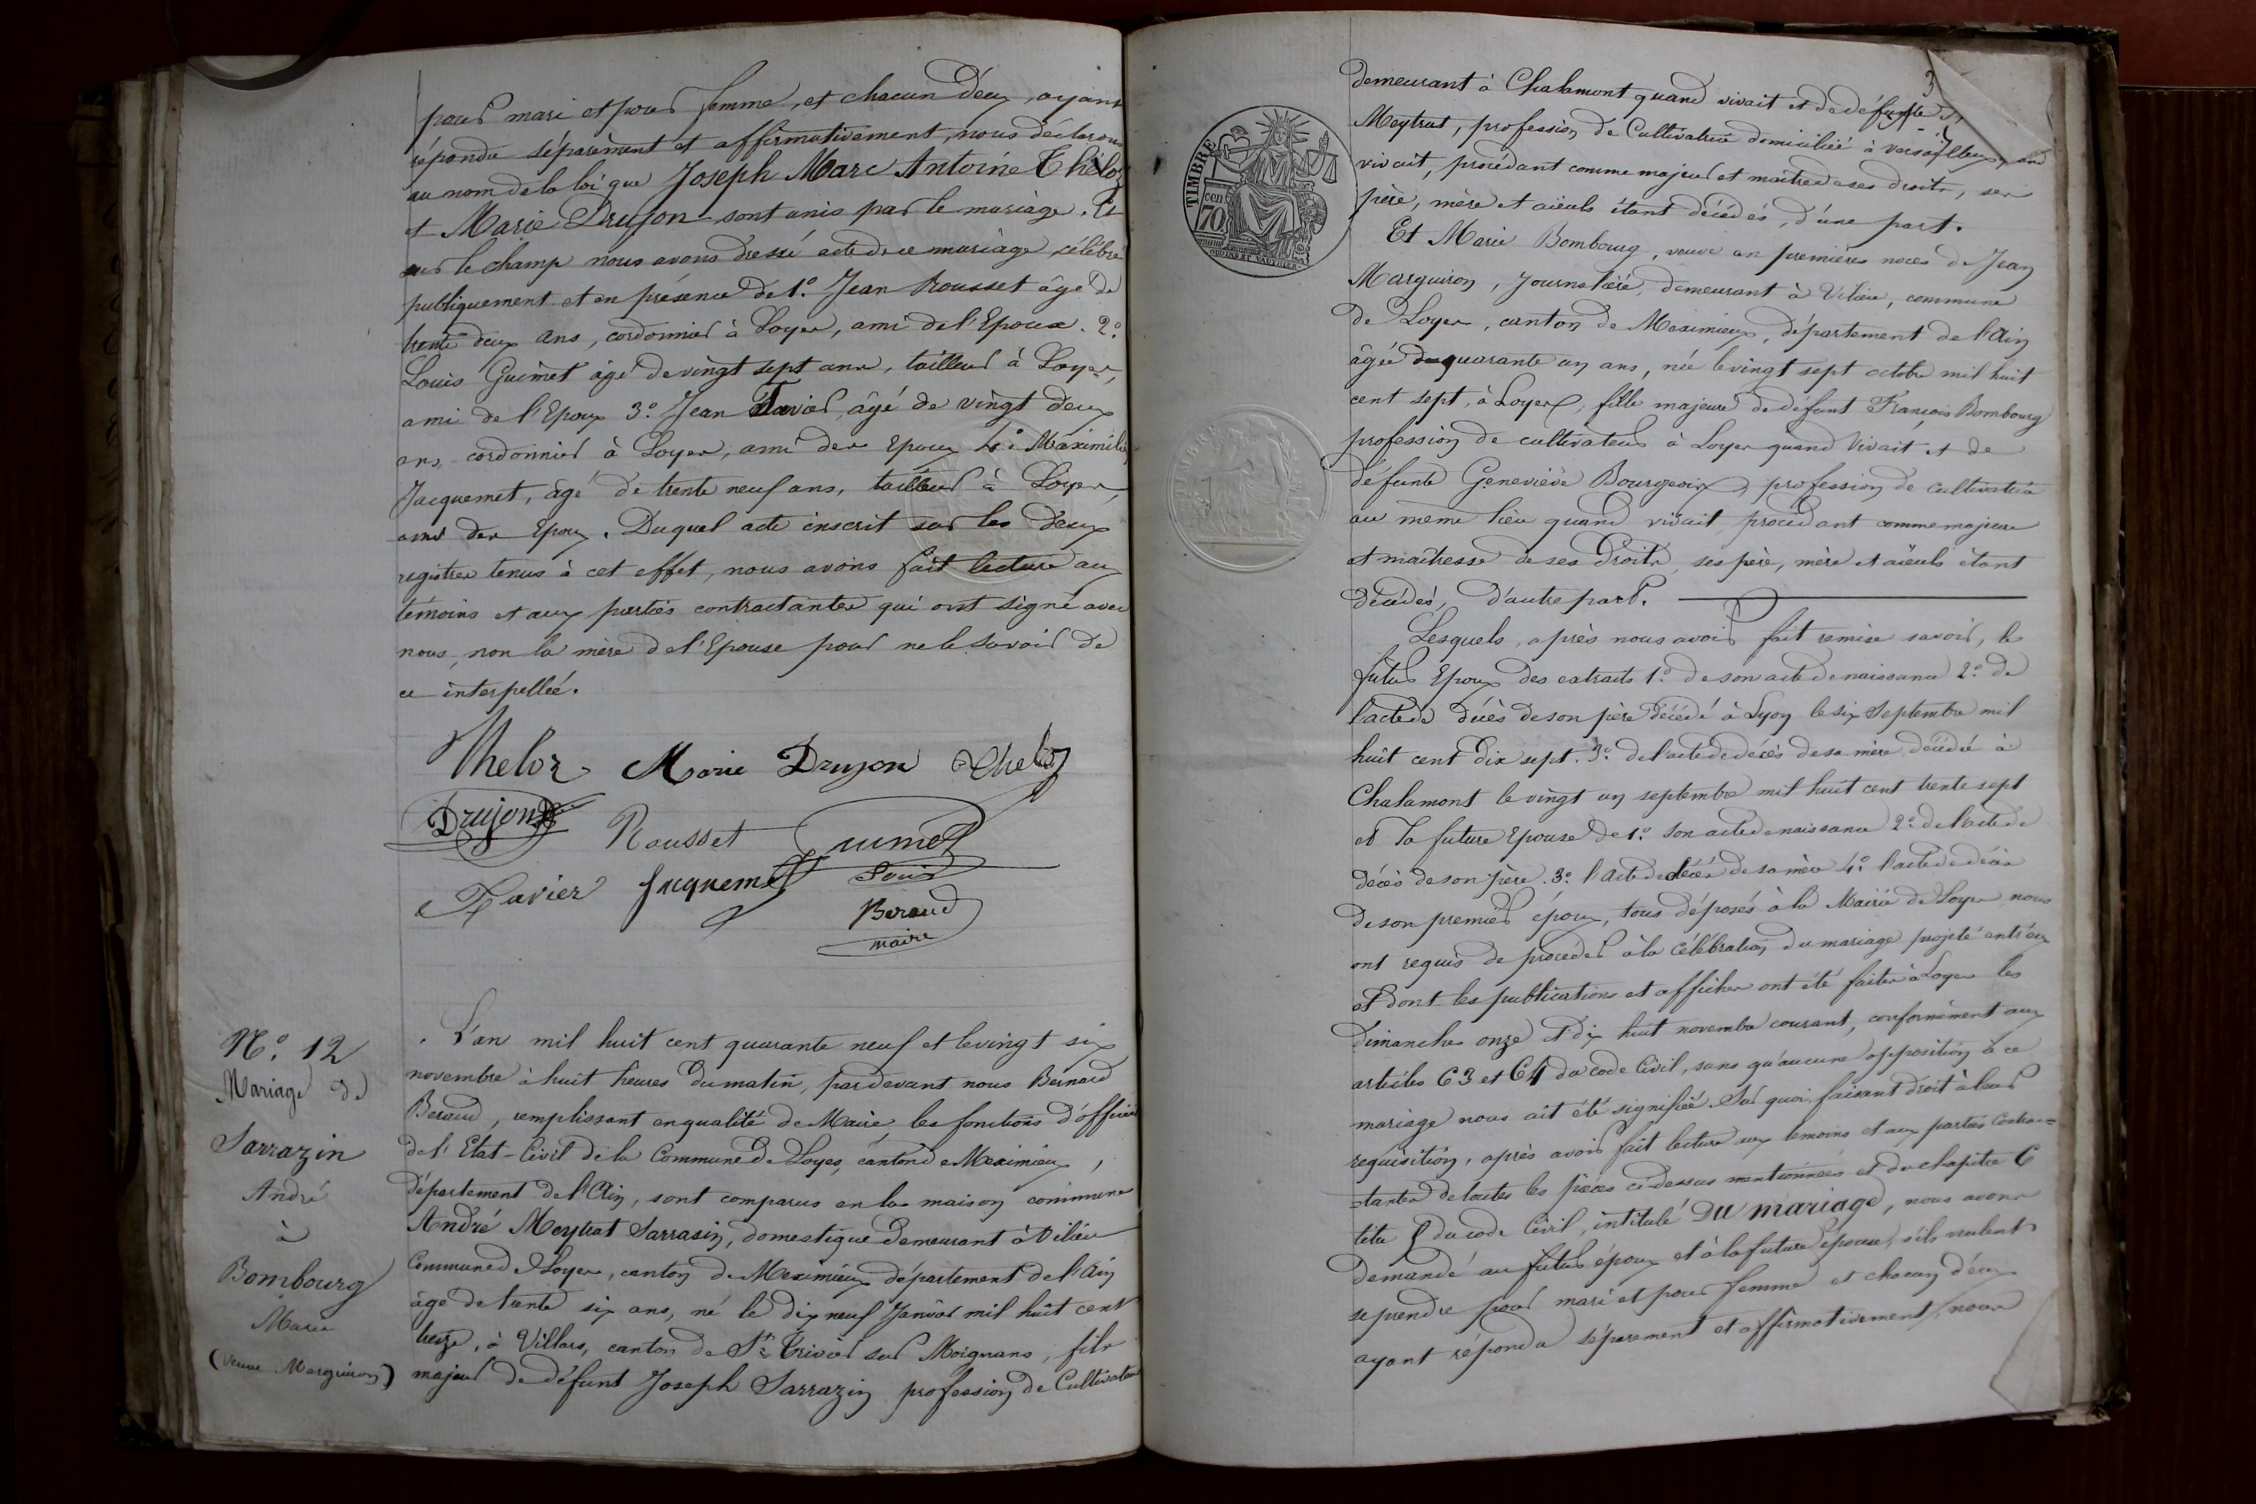 pour mari et pour femme, et chacun d'eux, ayant
répondu séparèment et affirmativement, nous déclarons
au nom de la loi que Joseph Marc Antoine Theloz
et Marie Drujon sont unis par le mariage. Et
sur le champ nous avons dressé acte de ce mariage célébré
publiquement et en présence de 1.° Jean Rousset âgé de
trente deux ans, cordonnier à Loyes, ami de l'Epoux. 2.°
Louis Guimet âgé de vingt sept ans, tailleur à Loyes,
ami de l'Epoux 3.° Jean Tavier, âgé de vingt deux
ans, cordonnier à Loyes, ami des Epoux 4.° Maximilien
Jacquemet, âgé de trente neuf ans, tailleur à Loyes,
ami des Epoux. Duquel acte inscrit sur les deux
registres tenus à cet effet, nous avons fait lecture aux
témoins et aux parties contractantes qui ont signé avec
nous, non la mère de l'Epouse pour ne le savoir de
ce interpellée.
Theloz Marie Drujon Theloz
Drujon Rousset Guimet
Louis
Tavier Jacquemet
Beraud
maire
N.° 12
Mariage de
Sarrazin
André
à
Bombourg
Marie
(veuve Marguiron)
L'an mil huit cent quarante neuf et le vingt six
novembre à huit heures du matin, pardevant nous Bernard
Beraud, remplissant en qualité de Maire, les fonctions d'officier
de l'Etat-Civil de la Commune de Loyes, canton de Meximieux,
département de l'Ain, sont comparus en la maison commune
André Meytrat Sarrasin, domestique demeurant à Vilieu
Commune de Loyes, canton de Meximieux département de l'Ain
âgé de trente six ans, né le dix neuf Janvier mil huit cent
treize, à Villars, canton de St Trivier sur Moignans, fils
majeur de défunt Joseph Sarrazin profession de Cultivateur
3
demeurant à Chalamont quand vivait et de défunte
Meytrat, profession de Cultivatrice domiciliée à Versailleux,
vivait, procédant comme majeur et maitre de ses droits, ses
père, mère et aïeuls étant décédés, d'une part.
Et Marie Bombourg, veuve en premières noces de Jean
Marguiron, Journalière, demeurant à Vilieu, commune
de Loyes, canton de Meximieux, département de l'Ain
âgée de quarante un ans, née le vingt sept octobre mil huit
cent sept, à Loyes, fille majeure de défunt François Bombourg
profession de cultivateur à Loyes quand vivait et de
défunte Geneviève Bourgeois, profession de cultivatrice
au même lieu quand vivait procédant comme majeure
et maîtresse de ses droits, ses père, mère et aïeuls étant
décédés, d'autre part.
Lesquels, après nous avoir fait remise savoir, le
futur Epoux des extraits 1.° de son acte de naissance 2.° de
l'acte de décès de son père décédé à Lyon le six Septembre mil
huit cent dix sept. 3.° de l'acte de décès de sa mère décédée à
Chalamont le vingt un septembre mil huit cent trente sept
et la future Epouse de 1.° son acte de naissance 2.° de l'acte de
décès de son père. 3.° l'acte de décès de sa mère 4.° l'acte de décès
de son premier époux, tous déposés à la Mairie de Loyes nous
ont requis de procéder à la célébration du mariage projeté entr'eux
et dont les publications et affiches ont été faites à Loyes les
dimanches onze et dix huit novembre courant, conformément aux
articles 63 et 64 du code Civil, sans qu'aucune opposition à ce
mariage nous ait été signifiée. Sur quoi, faisant droit à leur
requisition, après avoir fait lecture aux témoins et aux parties contrac=
tantes de toutes les pièces ci-dessus mentionnées et du chapitre 6
titre 5 du code Civil, intitulé DU mariage, nous avons
demandé au futur époux et à la future épouse, s'ils veulent
se prendre pour mari et pour femme et chacun d'eux
ayant répondu séparement et affirmativement, nous
TIMBRE
70
cen